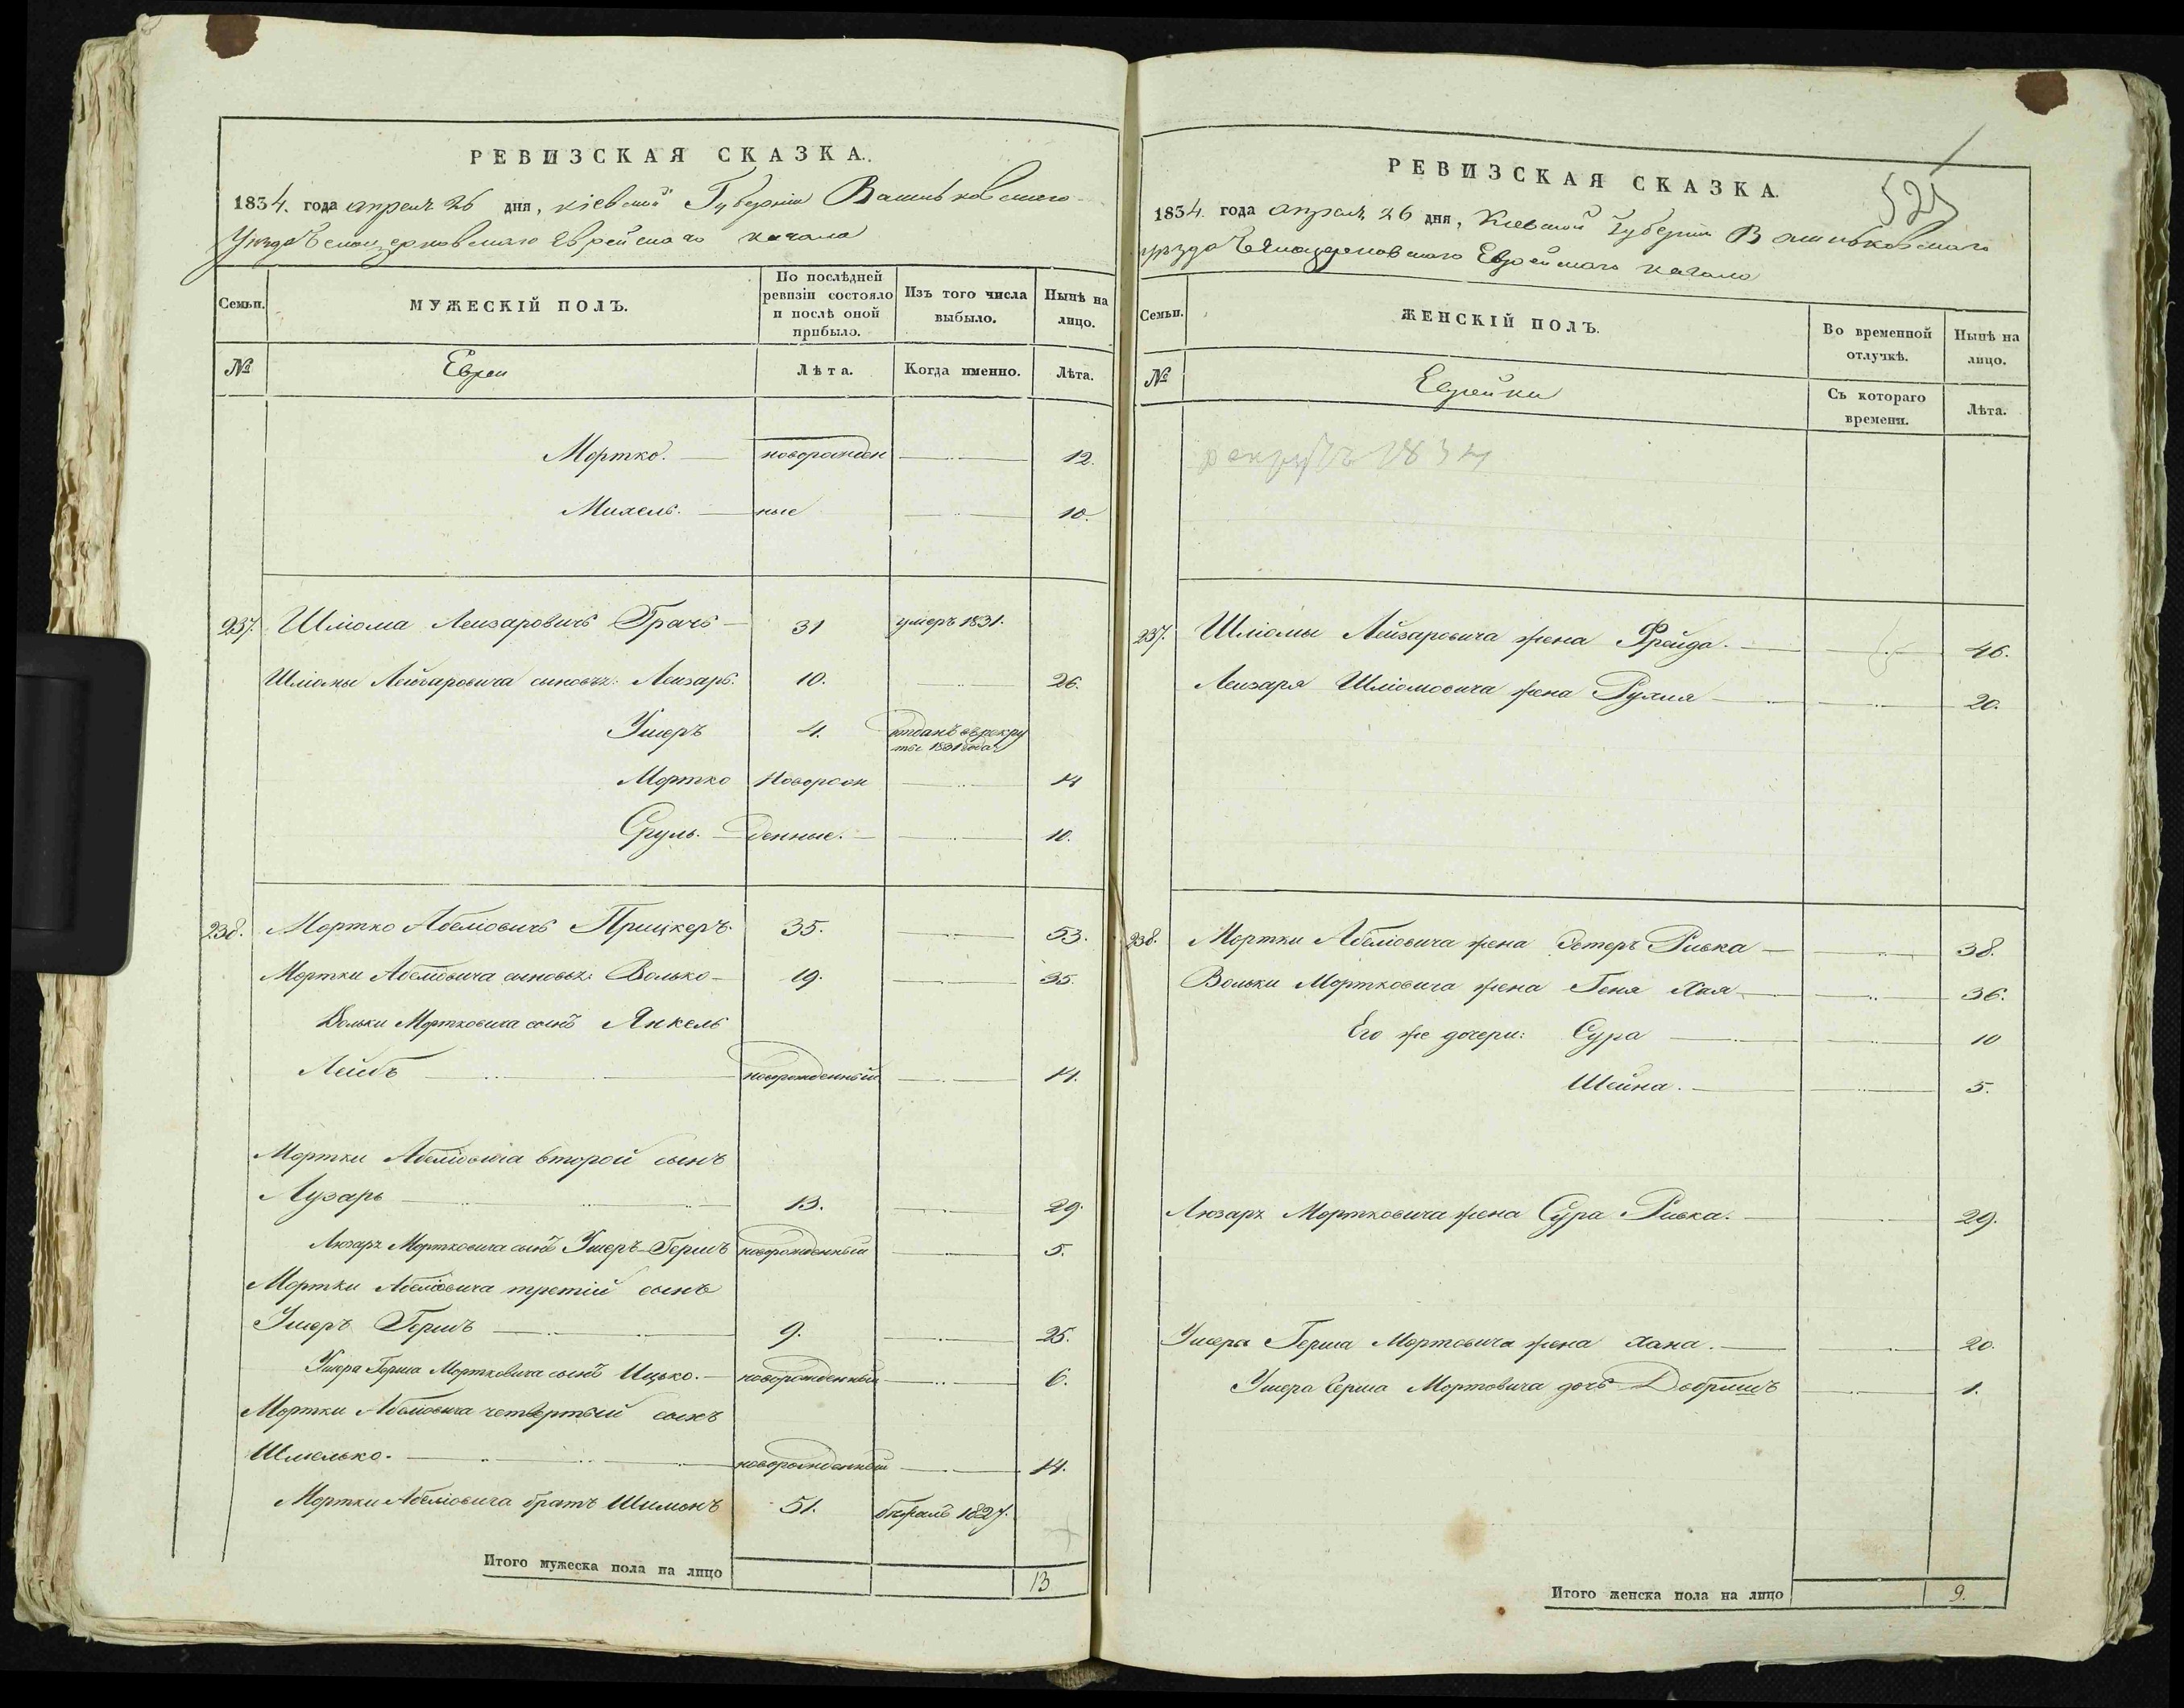 РЕВИЗСКАЯ СКАЗКА.
1834. года апреля 26 дня, Кіевской Губерніи Васильковскаго
Уезда Белоцерковскаго Еврейскаго кагала
Семьи. МУЖЕСКІЙ ПОЛЪ. По послѣдней ревизіи состояло и послѣ оной прибыло. Изъ того числа выбыло. Нынѣ на лицо.
№ Евреи Лѣта. Когда именно. Лѣта.
Мортко. новорожден 12.
Михель. ные 10.
237. Шліома Лейзаровичъ Грачъ 31 умеръ 1831.
Шліомы Лейзаровича сыновья: Лейзарь. 10. 26.
Ушеръ 4. отданъ въ рекру
ты 1831 года
Мортко Новорож 14
Сруль. денные. 10.
238. Мортко Абеліовичъ Прицкеръ. 35. 53.
Мортки Абеліовича сыновья: Волько 19. 35.
Вольки Мортковича сынъ Янкель
Лейбъ новорожденный 14.
Мортки Абеліовича второй сынъ
Лузарь 13. 29.
Люзаря Мортковича сынъ Ушеръ Гершъ новорожденный 5.
Мортки Абеліовича третій сынъ
Ушеръ Гершъ 9. 25.
Ушера Герша Мортковича сынъ Ицько. новорожденный 6.
Мортки Абеліовича четвертый сынъ
Шмелько. новорожденный 14.
Мортки Абеліовича братъ Шимонъ 51. бежалъ 1827.
Итого мужеска пола на лицо 13
РЕВИЗСКАЯ СКАЗКА.
525
1834. года апреля 26 дня, Кіевской Губерніи Васильковскаго
уезда Белоцерковскаго Еврейскаго кагала
Семьи. ЖЕНСКІЙ ПОЛЪ. Во временной отлучкѣ. Нынѣ на лицо.
№ Еврейки Съ котораго времени. Лѣта.
рекрутъ 1834
237. Шліомы Лейзаровича жена Фрейда. 46.
Лейзаря Шліомовича жена Рухля 20.
238. Мортки Абеліовича жена Эстеръ Ривка 38.
Вольки Мортковича жена Геня Хая 36.
Его же дочери: Сура 10
Шейна. 5.
Люзаря Мортковича жена Сура Ривка. 29.
Ушера Герша Мортовича жена Хана. 20.
Ушера Герша Мортовича дочь Добришъ 1.
Итого женска пола на лицо 9.